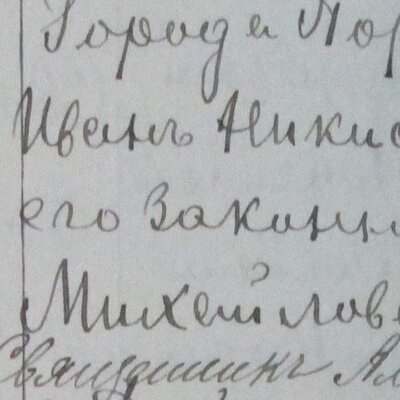 Города Пор
Иванъ Ники
его законн
Михайлов
Священникъ Ал